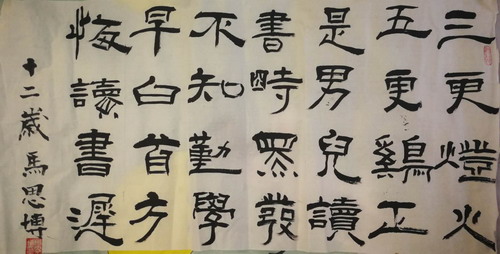 三更燈火
五更鷄正
是男兒讀
書時黑發
不知勤學
早白首方
悔讀書遲
十二歲馬思博